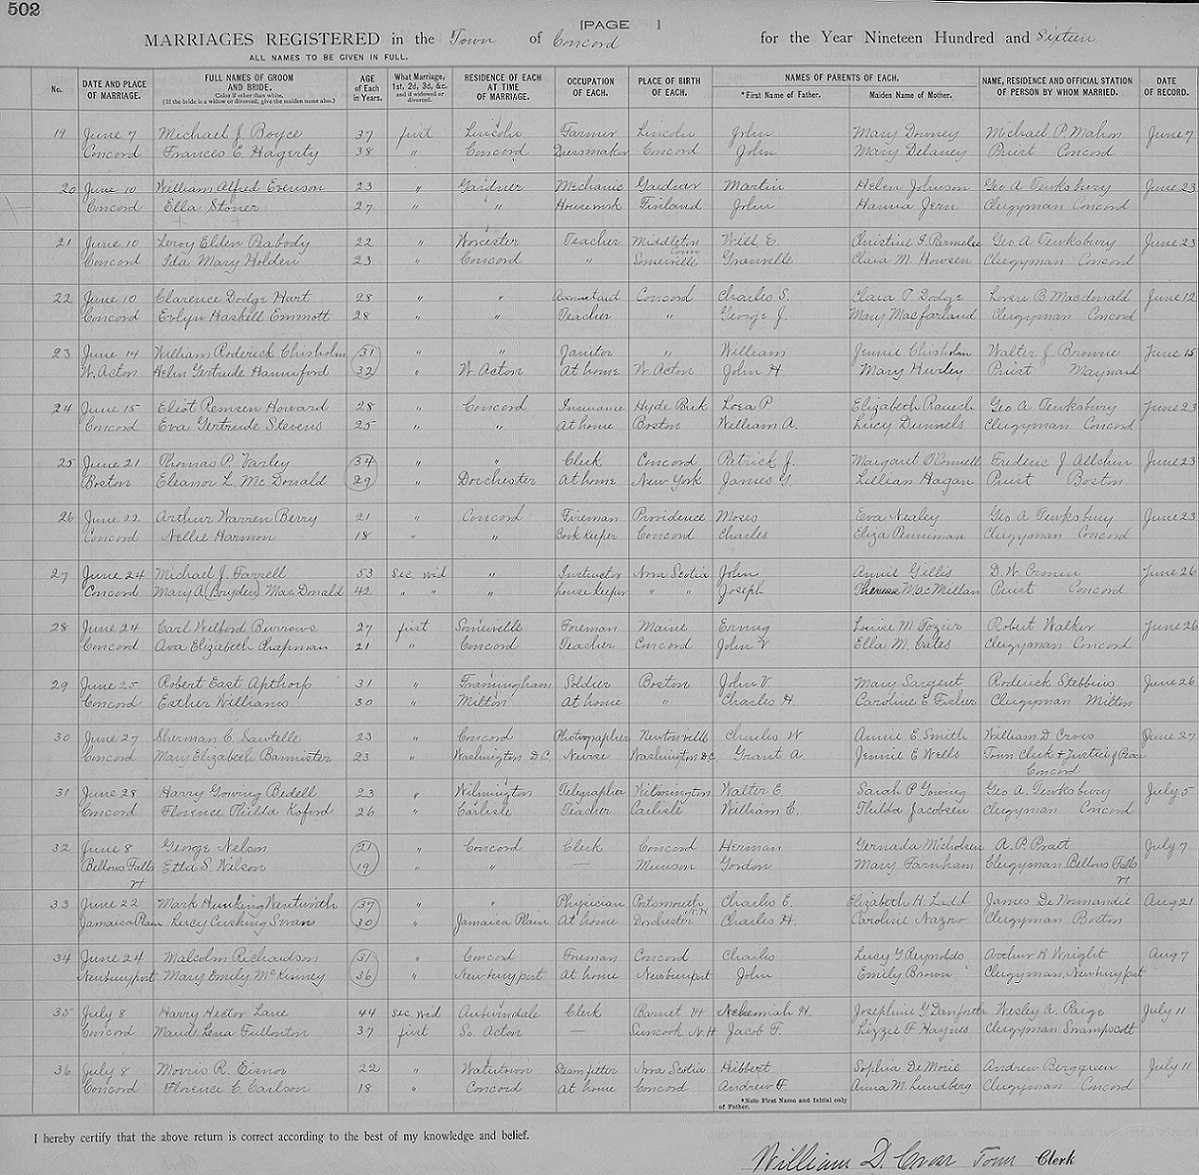 502
[PAGE ]
MARRIAGES REGISTERED in the Town of Concord for the Year Nineteen Hundred and Sixteen
ALL NAMES TO BE GIVEN IN FULL.
No. DATE AND PLACE OF MARRIAGE. FULL NAMES OF GROOM AND BRIDE. Color if other than white. (If the bride is a widow or divorced, give the maiden name also.) AGE of Each in Years. What Marriage, 1st, 2d, 3d, &c. and if widowed or divorced. RESIDENCE OF EACH AT TIME OF MARRIAGE. OCCUPATION OF EACH. PLACE OF BIRTH OF EACH. NAMES OF PARENTS OF EACH. *First Name of Father. Maiden Name of Mother. NAME, RESIDENCE AND OFFICIAL STATION OF PERSON BY WHOM MARRIED. DATE OF RECORD.
19 June 7 Michael J. Boyce 37 first Lincoln Farmer Lincoln John Mary Downey Michael P. Mahon June 7
Concord Frances E. Hagerty 38 " Concord Dressmaker Concord John Mary Delaney Priest Concord
20 June 10 William Alfred Evenson 23 " Gardner Mechanic Gardner Martin Helen Johnson Geo A Tewksbury June 23
Concord Ella Stoner 27 " " Housework Finland John Hanna Jern Clergyman Concord
21 June 10 Leroy Elden Peabody 22 " Worcester Teacher Middleton Will E. Christine I. Parmelee Geo A Tewksbury June 23
Conn
Concord Ida Mary Holden 23 " Concord " Somerville Granville Clara M. Howsen Clergyman Concord
22 June 10 Clarence Dodge Hart 28 " " Accountant Concord Charles S. Clara P. Dodge Loren B Macdonald June 12
Concord Evlyn Haskell Emmott 28 " " Teacher " George J. Mary Macfarland Clergyman Concord
23 June 14 William Roderick Chisholm 31 " " Janitor " William Jennie Chisholm Walter J. Browne June 15
W. Acton Helen Gertrude Hanniford 32 " W. Acton At home W. Acton John H Mary Hurley Priest Maynard
24 June 15 Eliot Remsen Howard 28 " Concord Insurance Hyde Park Lora P Elizabeth Rauch Geo A Tewksbury June 23
Concord Eva Gertrude Stevens 25 " " At home Boston William A. Lucy Dunnels Clergyman Concord
25 June 21 Thomas P. Varley 34 " " Clerk Concord Patrick J. Margaret O'Connell Frederic J. Allchin June 23
Boston Eleanor L. McDonald 29 " Dorchester At home New York James G. Lillian Hagan Priest Boston
26 June 22 Arthur Warren Berry 21 " Concord Fireman Providence Moses Eva Nealey Geo. A Tewksbury June 23
Concord Nellie Harmon 18 " " Book Keeper Concord Charles Eliza Clergyman Concord
27 June 24 Michael J. Farrell 53 sec wid " Instructor Nova Scotia John Annie Gillis D. W. Cronin June 26
Concord Mary A (Bryden) MacDonald 42 " " " House keeper " " Joseph Theresa MacMillan Priest Concord
28 June 24 Carl Welford Burrows 27 first Somerville Foreman Maine Erving Louise M Fozier Robert Walker June 26
Concord Ava Elizabeth Chapman 21 " Concord Teacher Concord John V Ella M. Cates Clergyman Concord
29 June 25 Robert East Apthorp 31 " Framingham Soldier Boston John V Mary Sargent Roderick Stebbins June 26
Concord Esther Williams 30 " Milton At home " Charles H. Caroline E Fisher Clergyman Milton
30 June 27 Sherman C. Sawtelle 23 " Concord Photographer Newtonville Charles W Annie E Smith William D Cross June 27
Concord Mary Elizabeth Bannister 23 " Washington D.C. Nurse Washington D.C. Grant A. Jennie E Wells Town Clerk & Justice of Peace
Concord
31 June 28 Harry Gowing Bedell 23 " Wilmington Telegrapher Wilmington Walter E Sarah P Gowing Geo A. Tewksbury July 5
Concord Florence Thilda Koford 26 " Carlisle Teacher Carlisle William C. Thilda Jacobsen Clergyman Concord
32 June 8 George Nelson 21 " Concord Clerk Concord Herman Gernada Nicholsen A. P. Pratt July 7
Bellows Falls Etta S. Wilson 19 " " — Munson Gordon Mary Farnham Clergyman Bellows Falls
Vt Vt
33 June 22 Mark Hunking Wentworth 37 " " Physician Portsmouth Charles E. Elizabeth H. Ladd James De Normandie Aug 21
N.H
Jamaica Plain Lucy Cushing Swan 30 " Jamaica Plain At home Dorchester Charles H. Caroline Nazro Clergyman Boston
34 June 24 Malcolm Richardson 31 " Concord Foreman Concord Charles Lucy G Reynolds Arthur H Wright Aug 7
Newburyport Mary Emily McKinney 36 " Newburyport At home Newburyport John Emily Brown Clergyman Newburyport
35 July 8 Harry Hector Lane 44 sec wid Auburndale Clerk Barnet Vt Nehemiah H. Josephine G Danforth Wesley A. Paige July 11
Concord Maude Lena Fullonton 37 first So. Acton — Suncook N.H Jacob T. Lizzie F Haynes Clergyman Swampscott
36 July 8 Morris R. Eisnor 22 " Watertown Steam fitter Nova Scotia Hibbert Sophia DeMoie Andrew Berggren July 11
Concord Florence C Carlson 18 " Concord At home Concord Andrew F. Anna M. Lundberg Clergyman Concord
*Note First Name and Initial only of Father.
I hereby certify that the above return is correct according to the best of my knowledge and belief.
William D. Cross Town Clerk